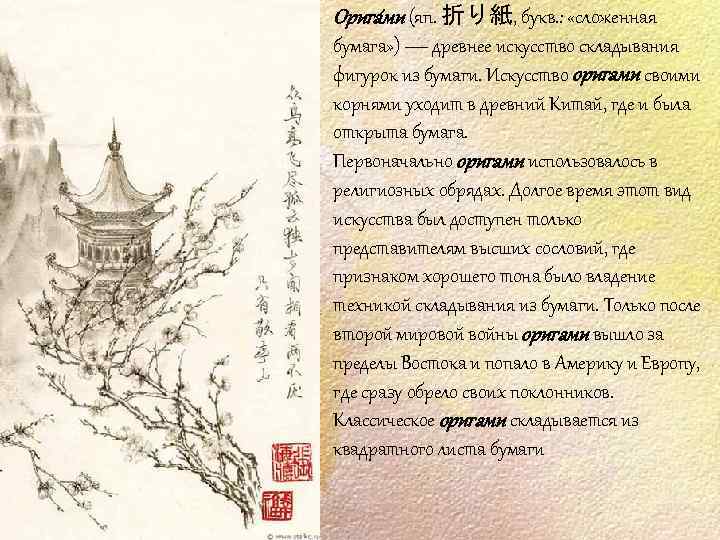 Орига́ми (яп. 折り紙, букв.: «сложенная
бумага» ) — древнее искусство складывания
фигурок из бумаги. Искусство оригами своими
корнями уходит в древний Китай, где и была
открыта бумага.
Первоначально оригами использовалось в
религиозных обрядах. Долгое время этот вид
искусства был доступен только
представителям высших сословий, где
признаком хорошего тона было владение
техникой складывания из бумаги. Только после
второй мировой войны оригами вышло за
пределы Востока и попало в Америку и Европу,
где сразу обрело своих поклонников.
Классическое оригами складывается из
квадратного листа бумаги
众鸟高飞尽孤云独去闲相看两不厌
只有敬亭山